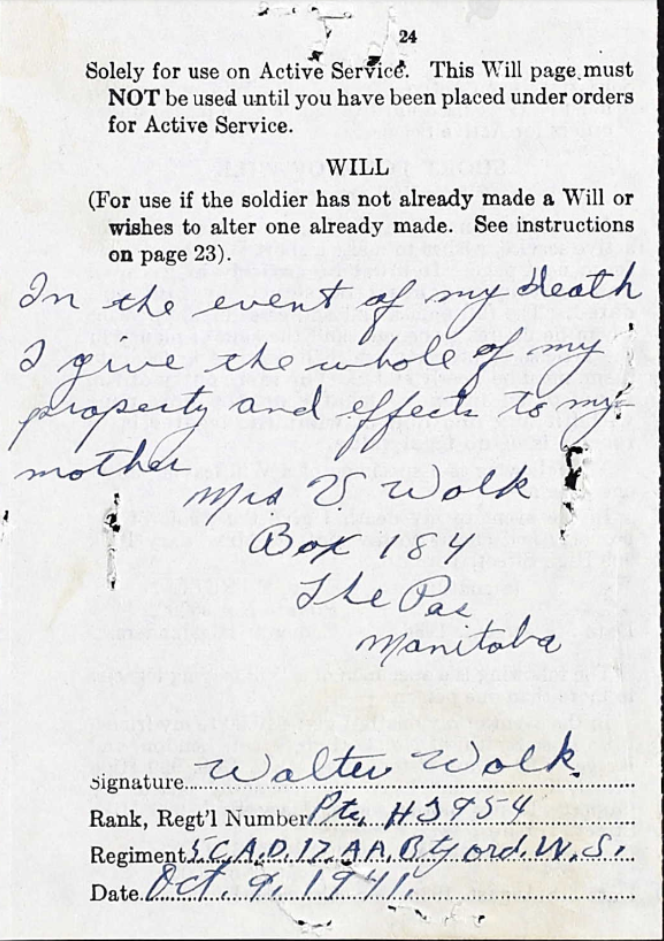 24
Solely for use on Active Service. This Will page must
NOT be used until you have been placed under orders
for Active Service.
WILL
(For use if the soldier has not already made a Will or
wishes to alter one already made. See instructions
on page 23).
In the event of my death
I give the whole of my
property and effects to my
mother
Mrs V. Wolk
Box 184
The Pas
Manitoba
Signature Walter Wolk.
Rank, Regt'l Number Pte. H3954
Regiment 5 C.A.D. 12 A.A. Bty ord. W.S.
Date Oct. 9, 1941.